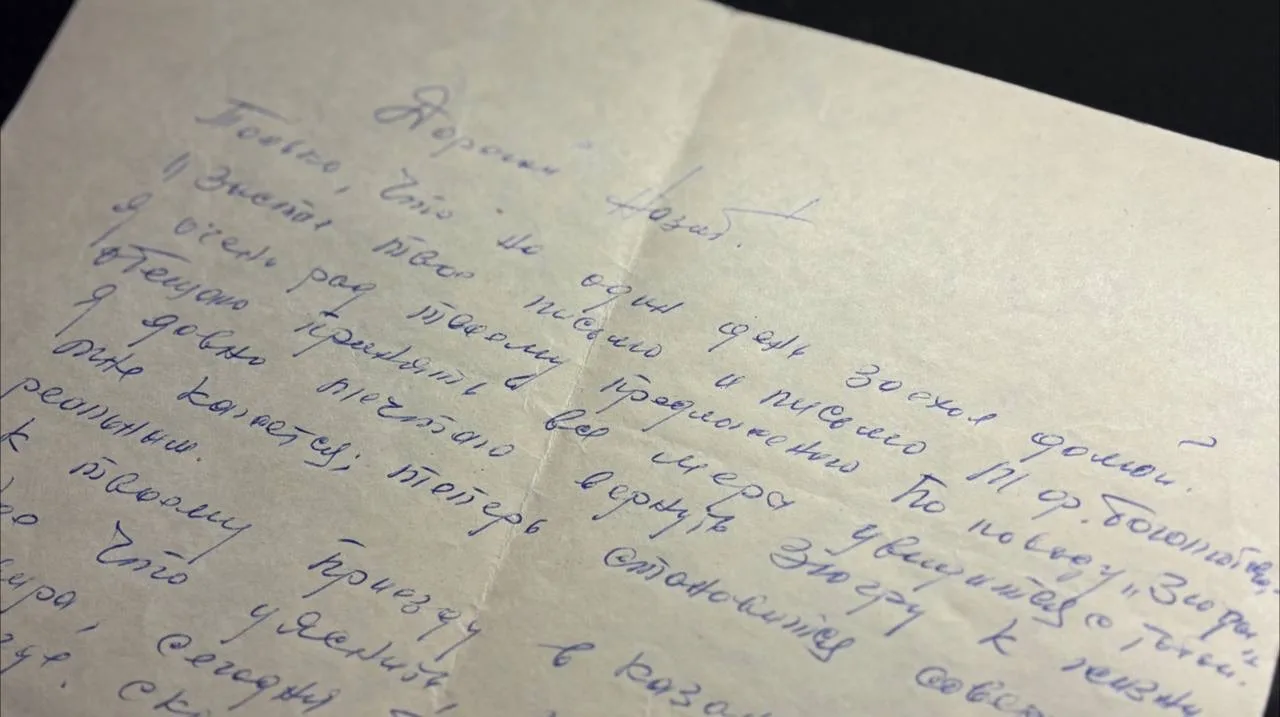 Дорогой Назиб.
Только, что на один день заехал домой.
Застал твое письмо и письмо
Я очень рад твоему предложению По поводу „Зюгры“
обещаю принять все меры увидится с тобой.
Я давно мечтаю вернуть Зюгру к жизни
мне кажется, теперь становится совсем
реальным.
К твоему приезду в Казань
что уяснить,
сегодня